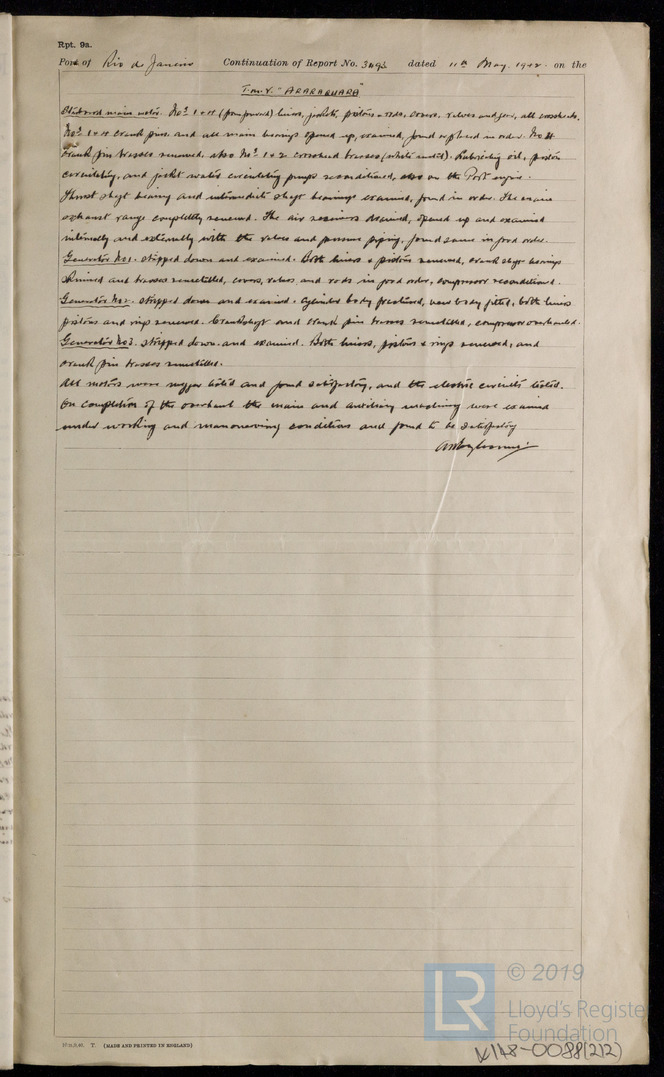 Rpt. 9a.
Port of Rio de Janeiro Continuation of Report No. 3493 dated 11th May 1942 on the
T.S.M.V. "ARARAQUARA"
Starboard main motor. Nos 1 & 4 liners, jackets, pistons & rods, covers, valves and gear, all crossheads,
Nos 1 & 4 crank pins and all main bearings opened up, examined, found or placed in order. No 4
crank pin brasses renewed, also Nos 1 & 2 crosshead brasses (white metal). Lubricating oil, piston
circulating, and jacket water circulating pumps reconditioned, also on the Port engine.
Thrust shaft bearing and intermediate shaft bearings examined, found in order. The main
exhaust range completely renewed. The air receivers drained, opened up and examined
internally and externally with the valves and pressure piping, found same in good order.
Generator No1. stripped down and examined. Both liners & pistons renewed, crank shaft bearings
skimmed and brasses remetalled, covers, valves and rods in good order, compressor reconditioned.
Generator No2. stripped down and examined. Cylinder body fractured, new body fitted, both liners
pistons and rings renewed. Crankshaft and crank pin brasses remetalled, compressor overhauled.
Generator No3. stripped down and examined. Both liners, pistons & rings renewed, and
crank pin brasses remetalled.
All motors were megger tested and found satisfactory, and the electric circuits tested.
On completion of the overhaul the main and auxiliary machinery were examined
under working and manoeuvring conditions and found to be satisfactory
T. (MADE AND PRINTED IN ENGLAND)
LR © 2019
Lloyd's Register
Foundation
W148-0088(2/2)